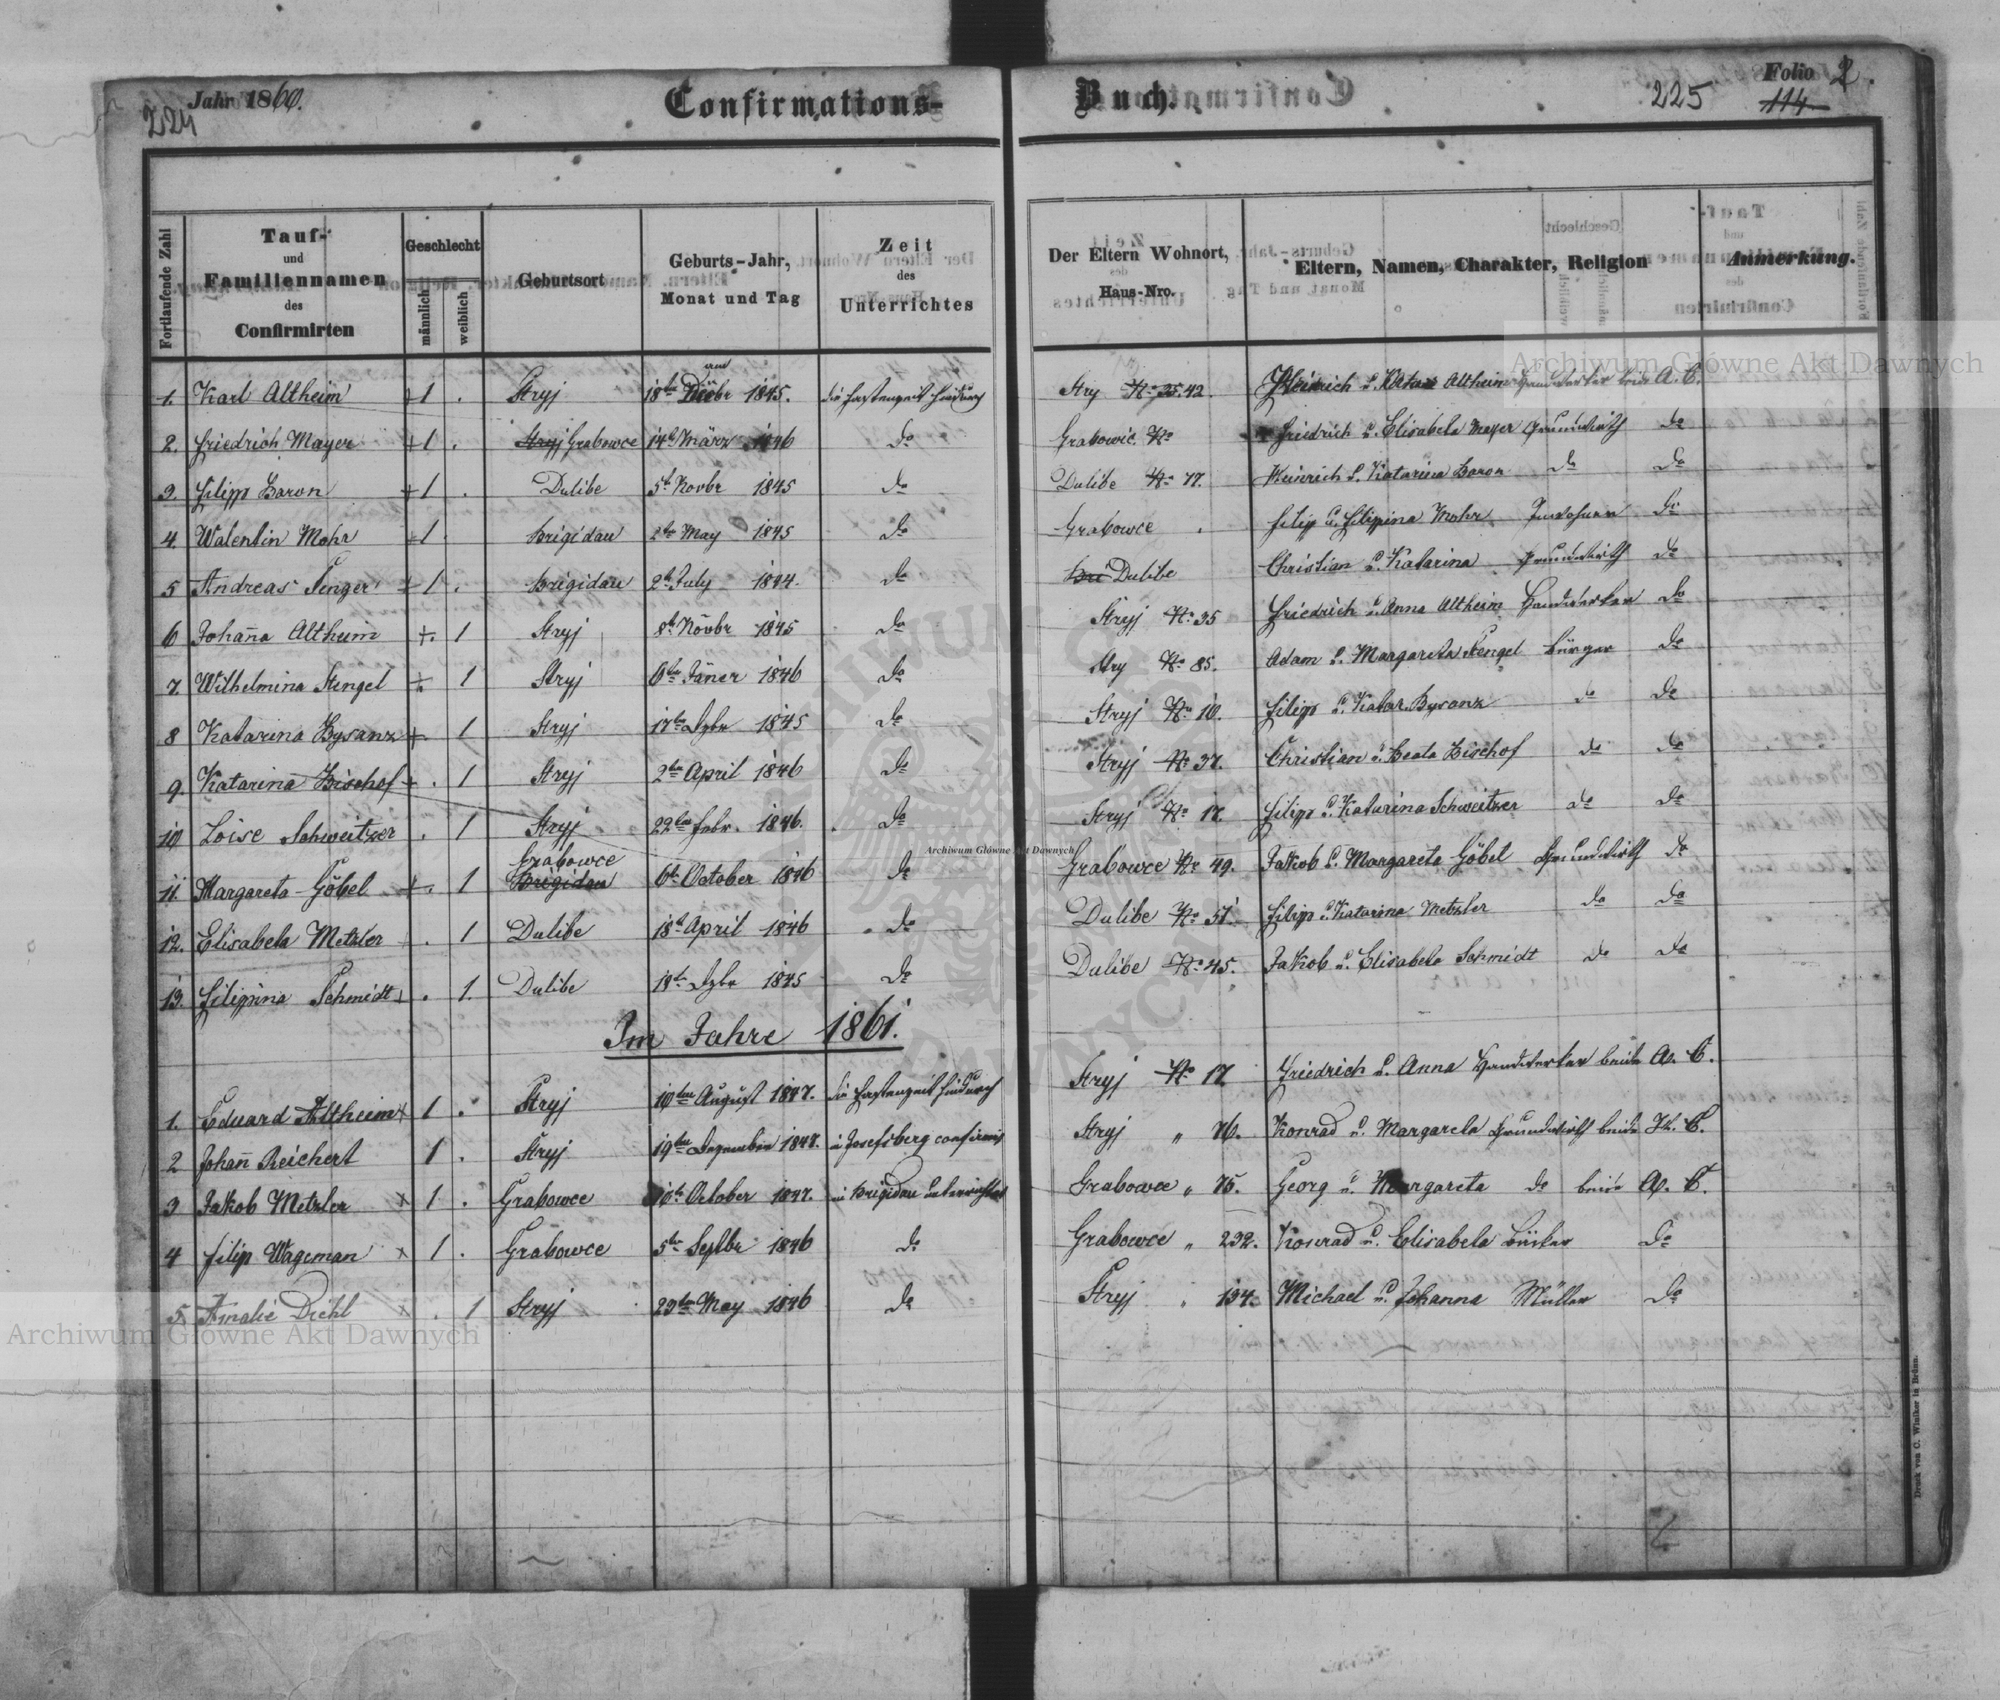 Jahr 1860.
224
Confirmations-
Buch.
225
Folio 2.
114
Fortlaufende Zahl
Tauf-
und
Familiennamen
des
Confirmirten
Geschlecht
männlich
weiblich
Geburtsort
Geburts-Jahr,
Monat und Tag
Zeit
des
Unterrichtes
Der Eltern Wohnort,
Haus-Nro.
Eltern, Namen, Charakter, Religion
Anmerkung.
1. Karl Altheim +1 . Stryj 18ten 1845. die Fastenzeit hindurch Stry No 35. 42. Heinrich u. Altheim Handwerker beide A. C.
2. Friedrich Mayer +1 . Stryj Grabowce 14t März 1846 do Grabowic No Friedrich u. Elisabeta Mayer Grundwirth do
3. Filipp Baron +1 . Dulibe 5t Novbr 1845 do Dulibe No 77. Heinrich u. Katarina Baron do do
4. Walentin Mohr +1 . Brigidau 2ten May 1845 do Grabowce . Filip u. Filippina Mohr do
5 Andreas Senger +1 . Brigidau 2t July 1844. do Bri Dulibe Christian u. Katarina Grundwirth do
6 Johaña Altheim +. 1 Stryj 8t Novbr 1845 do Stryj No 35 Friedrich u. Anna Altheim Handwerker do
7. Wilhelmina Stengel + 1 Stryj 6ten Jäner 1846 do Stry No 85. Adam u. Margareta Stengel Bürger do
8 Katarina Bysanz + 1 Stryj 17ten Dzbr 1845 do Stryj No 10. Filipp u. Katar. Bysanz do do
9. Katarina Bischof + . 1 Stryj 2ten April 1846 do Stryj No 37. Christian u. Beata Bischof do do
10 Loise Schweitzer . 1 Stryj 22ten Febr. 1846. do Stryj No 17. Filipp u. Katarina Schweitzer do do
11. Margareta Göbel +. 1 Grabowce Brigidau 6t October 1846 do Grabowce No 49. Jakob u. Margareta Göbel Grundwirth do
12. Elisabeta Metzler . 1 Dulibe 18t April 1846 do Dulibe No 51. Filipp u. Katarina Metzler do do
13. Filippina Schmidt . 1. Dulibe 18t Dzbr 1845 do Dulibe No 45. Jakob u. Elisabeta Schmidt do do
Im Jahre 1861.
1. Eduard Altheim x 1 . Stryj 10ten August 1847. die Fastenzeit hindurch Stryj No 17. Friedrich u. Anna Handwerker beide A. C.
2 Johañ Reichert 1 . Stryj 19ten Dezember 1847. in Josefsberg confirmirt Stryj " 76. Konrad u. Margareta Grundwirth beide H. C.
3 Jakob Metzler x 1 . Grabowce 10t October 1847. in Brigidau unterrichtet Grabowce " 75. Georg u. Margareta do beide A. C.
4 Filip Wageman x 1 . Grabowce 5ten Septbr 1846 do Grabowce " 232. Konrad u. Elisabeta do
5 Amalie Diehl x . 1 Stryj 23ten May 1846 do Stryj " 134. Michael u. Johanna Müller do
Druck von C. Winiker in Brünn.
Archiwum Główne Akt Dawnych
Archiwum Główne Akt Dawnych
Archiwum Główne Akt Dawnych